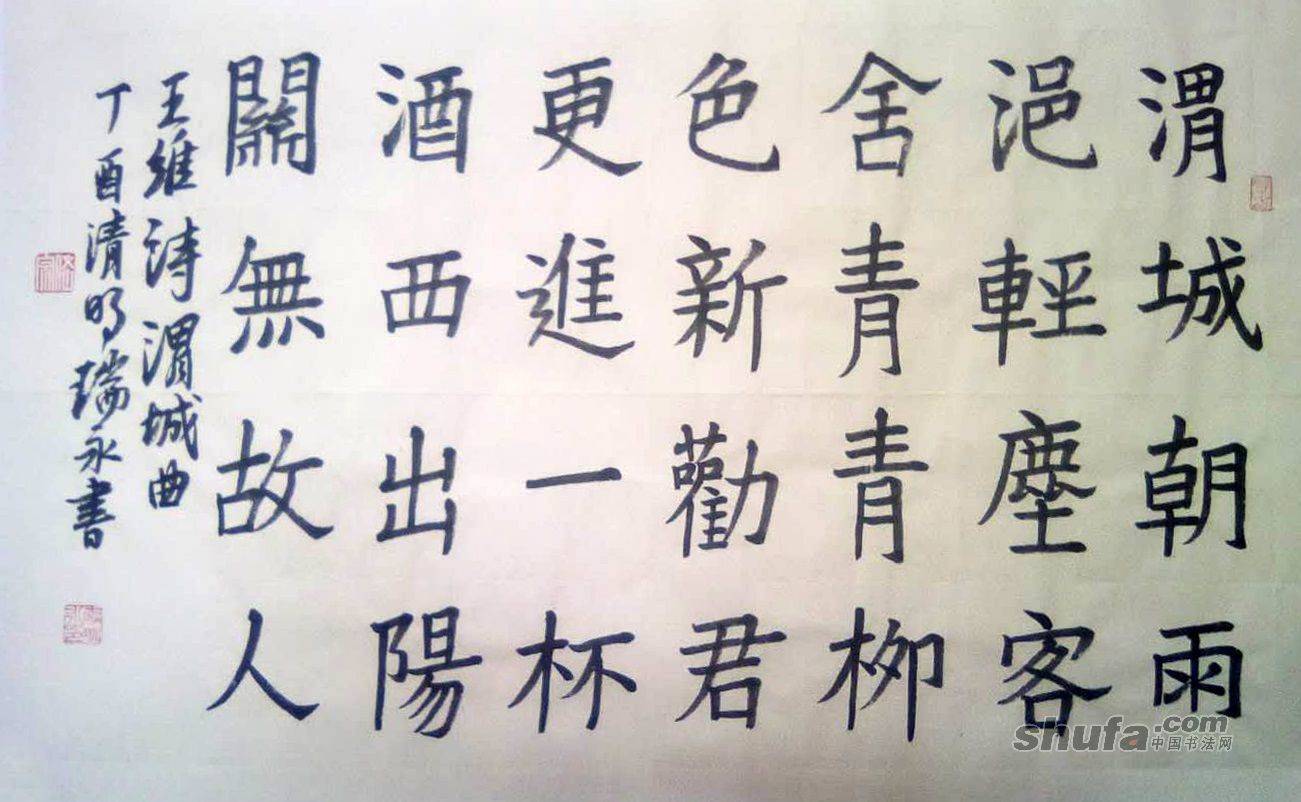 渭城朝雨
浥輕塵客
舍青青柳
色新勸君
更進一杯
酒西出陽
關無故人
王維詩渭城曲
丁酉清明瑞永書
shufa.com
中国书法网